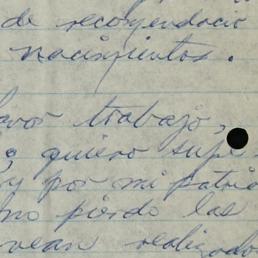 de recomendacio
nacimientos.
avor trabajo,
quiero supe
y por mi patria
no pierdo las
vean realizado